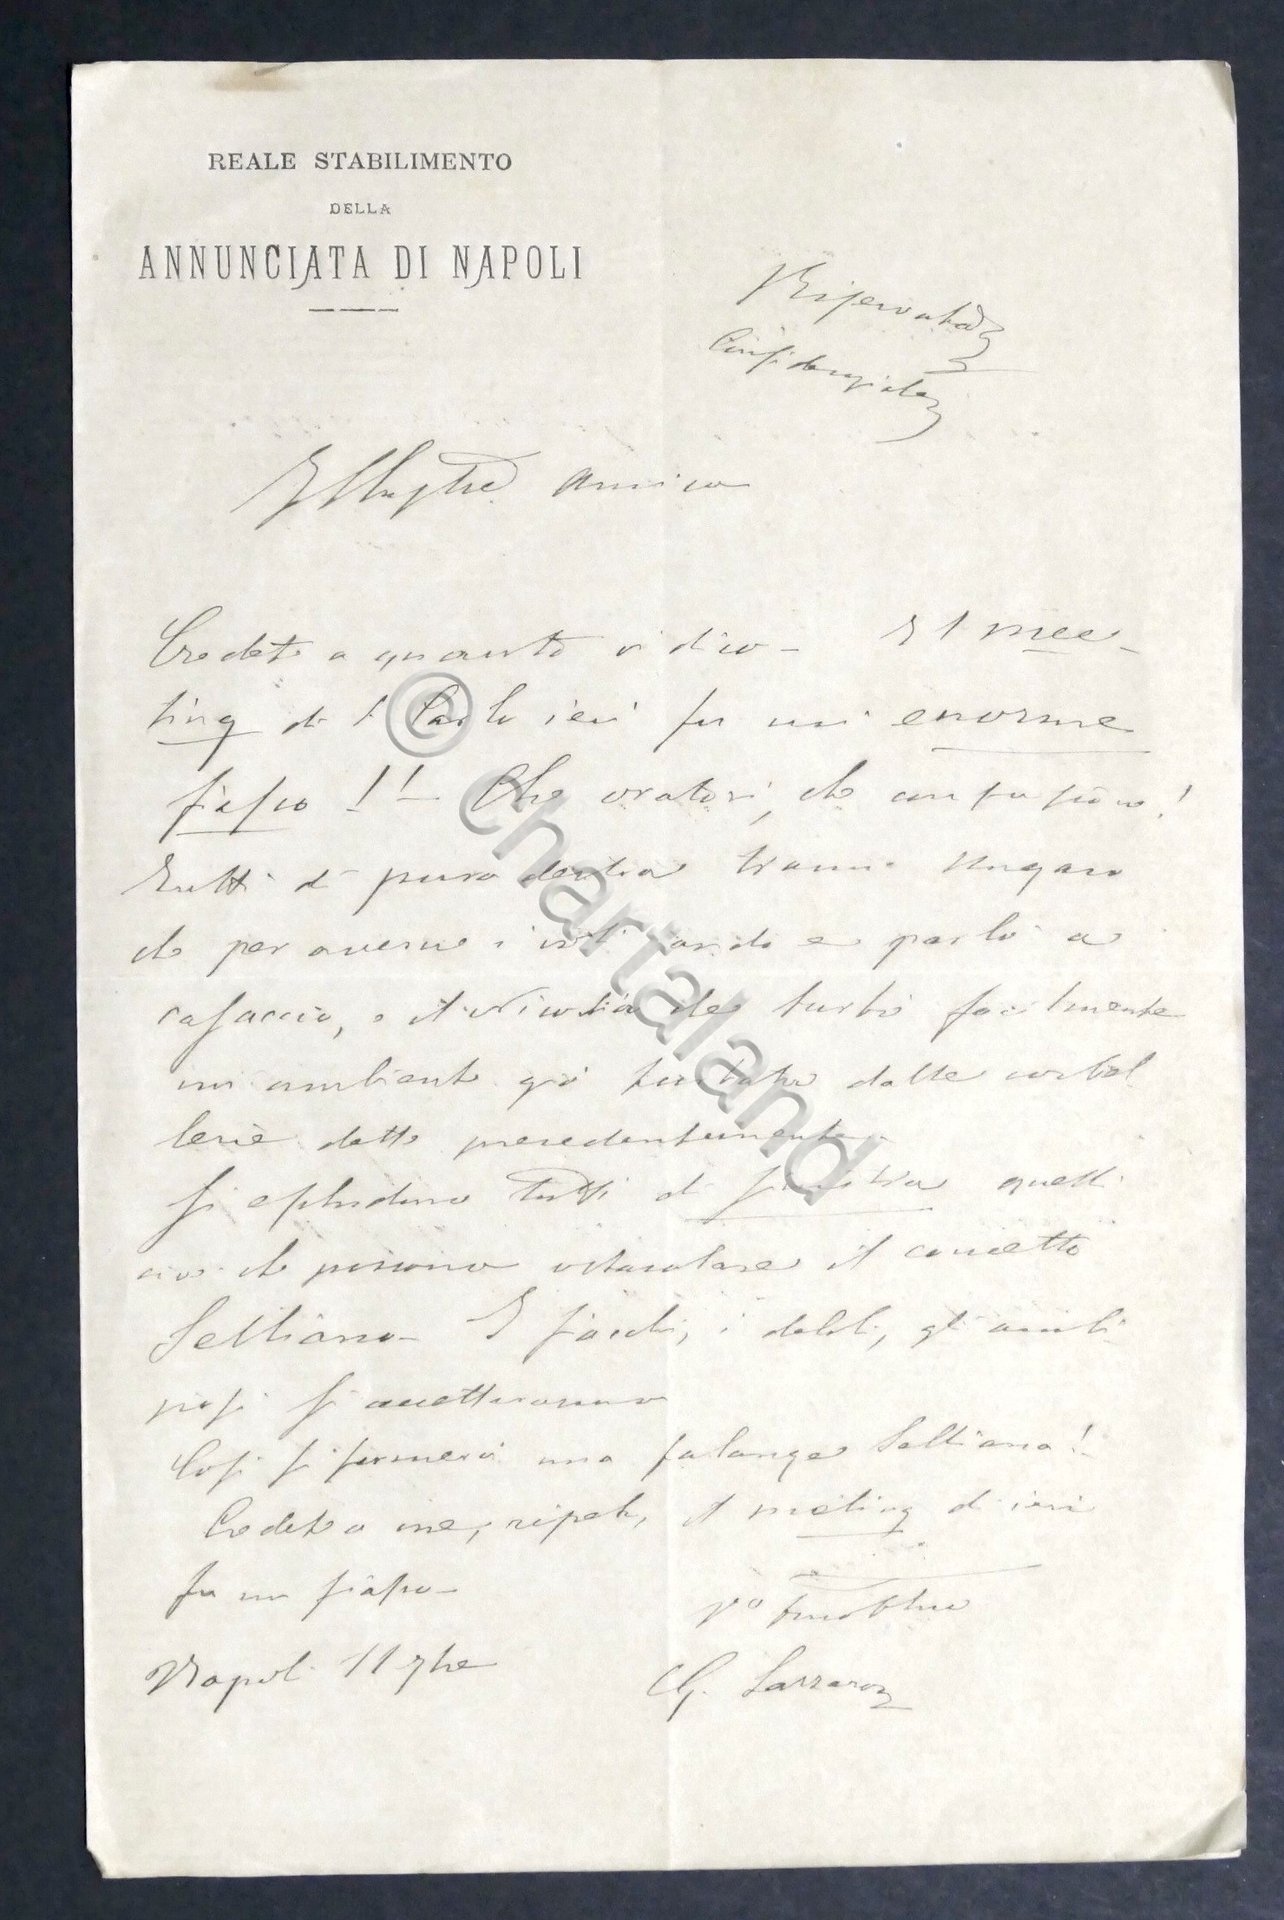 REALE STABILIMENTO
DELLA
ANNUNCIATA DI NAPOLI
Riservata
Confidenziale
Illustre amico
Credete a quanto vi dico - Il mee-
ting di S Carlo ieri fu un enorme
fiasco !! - Che oratori, che confusione!
Tutti di pura destra tranne Ungaro
che per averne i voti andò e parlò a
casaccio, e il Nicotera che turbò facilmente
un ambiente già turbato dalle corbel
lerie dette precedentemente.
Si escludano tutti di sinistra quelli
che possono ostacolare il concetto
Selliano - I fiacchi, i deboli, gli ambi
ziosi si accetteranno
Così si formerà una falange Selliana!
Credete a me, ripeto, il meeting di ieri
fu un fiasco -
Vo
Napoli 11 9bre
G. Lazzaro
© Chartaland